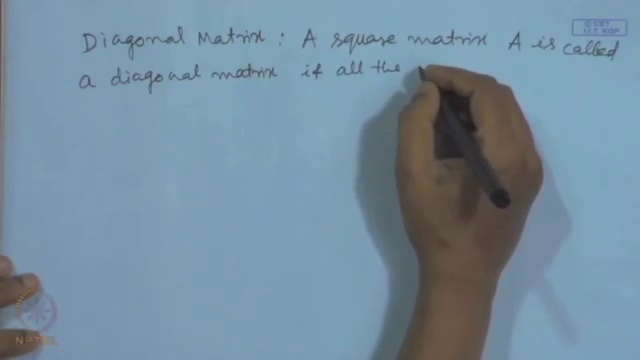 Diagonal Matrix : A square matrix A is called
a diagonal matrix if all the
NPTEL